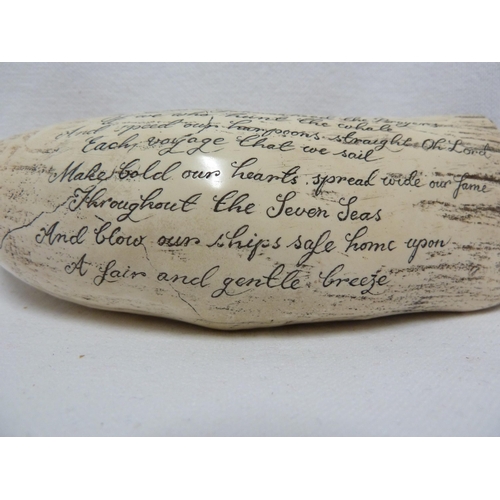 who hunt the whale
And speed our harpoons straight Oh Lord
Each voyage that we sail
Make bold our hearts, spread wide our fame
Throughout the Seven Seas
And blow our ships safe home upon
A fair and gentle breeze